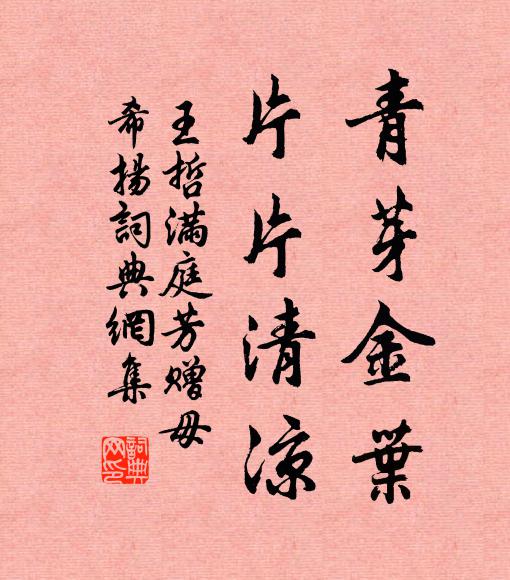 青芽金葉
片片清涼
王哲滿庭芳贈毋
希揚詞典網集
詞典
网印